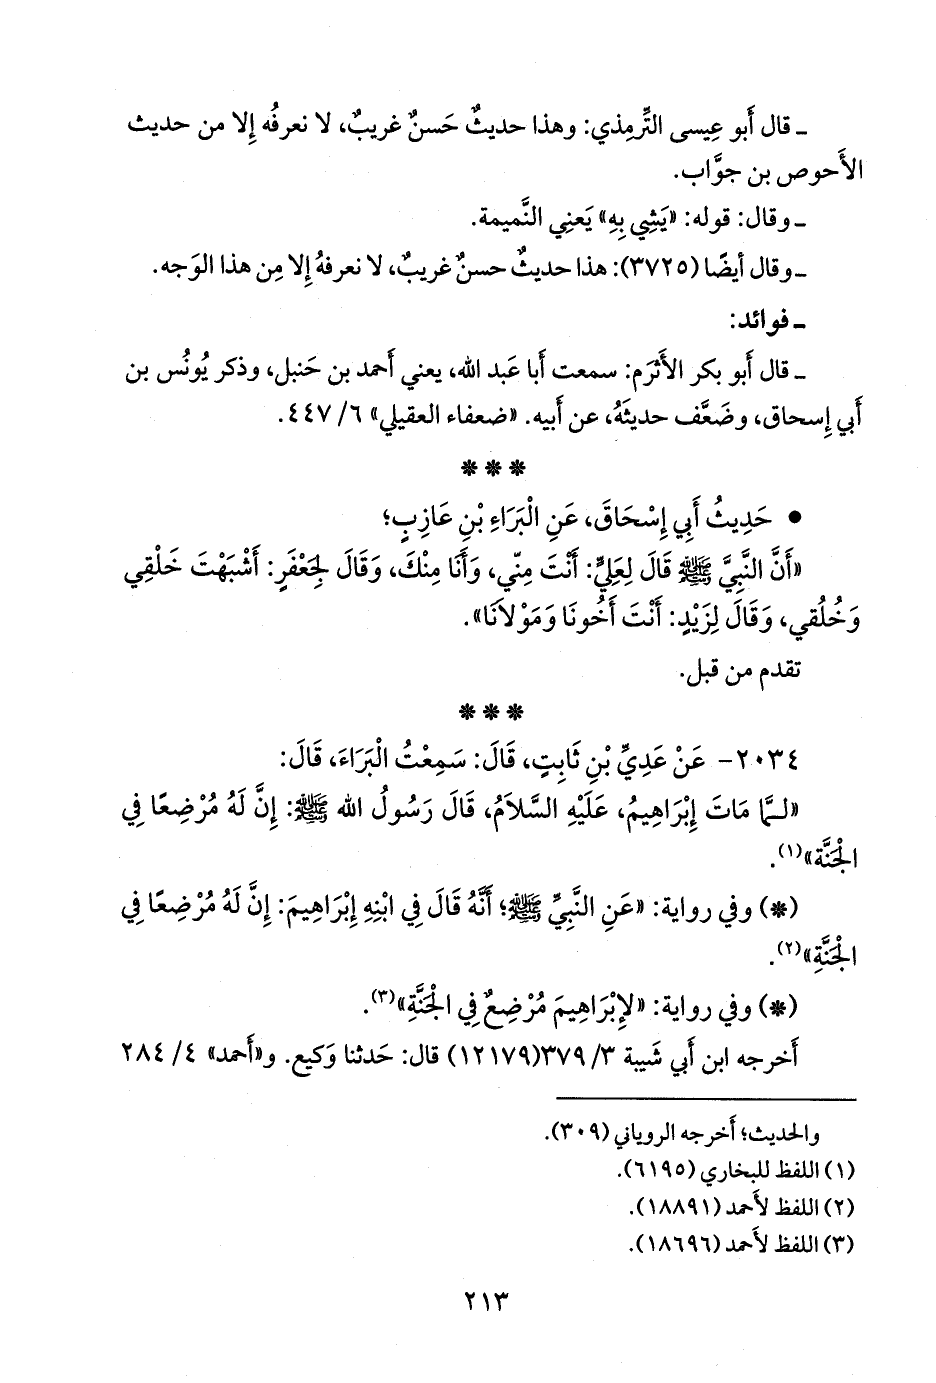 ـ قال أَبو عِيسى التِّرمِذي: وهذا حديثٌ حَسنٌ غريبٌ، لا نعرفُه إِلا من حديث
الأَحوص بن جوَّاب.
ـ وقال: قوله: «يَشِي بِهِ» يَعنِي النَّميمة.
ـ وقال أيضًا (٣٧٢٥): هذا حديثٌ حسنٌ غريبٌ، لا نعرفهُ إِلا مِن هذا الوَجه.
ـ فوائد:
ـ قال أَبو بكر الأَثرَم: سمعت أَبا عَبد الله، يعني أَحمد بن حَنبل، وذكر يُونُس بن
أَبي إِسحاق، وضَعَّف حديثَهُ، عن أَبيه. «ضعفاء العقيلي» ٦/ ٤٤٧.
* * *
• حَدِيثُ أَبِي إِسْحَاقَ، عَنِ الْبَرَاءِ بْنِ عَازِبٍ؛
«أَنَّ النَّبِيَّ ﷺ قَالَ لِعَلِيٍّ: أَنْتَ مِنِّي، وَأَنَا مِنْكَ، وَقَالَ لِجَعْفَرٍ: أَشْبَهْتَ خَلْقِي
وَخُلُقي، وَقَالَ لِزَيْدٍ: أَنْتَ أَخُونَا وَمَوْلاَنَا».
تقدم من قبل.
* * *
٢٠٣٤- عَنْ عَدِيِّ بْنِ ثَابِتٍ، قَالَ: سَمِعْتُ الْبَرَاءَ، قَالَ:
«لَمَّا مَاتَ إِبْرَاهِيمُ، عَلَيْهِ السَّلاَمُ، قَالَ رَسُولُ الله ﷺ: إِنَّ لَهُ مُرْضِعًا فِي
الْجَنَّة»(١).
(*) وفي رواية: «عَنِ النَّبِيِّ ﷺ؛ أَنَّهُ قَالَ فِي ابْنِهِ إِبْرَاهِيمَ: إِنَّ لَهُ مُرْضِعًا فِي
الْجَنَّةِ»(٢).
(*) وفي رواية: «لإِبْرَاهِيمَ مُرْضِعٌ فِي الْجَنَّةِ»(٣).
أَخرجه ابن أَبي شَيبة ٣/ ٣٧٩(١٢١٧٩) قال: حَدثنا وَكيع. و«أَحمد» ٤/ ٢٨٤
والحديث؛ أَخرجه الروياني (٣٠٩).
(١) اللفظ للبخاري (٦١٩٥).
(٢) اللفظ لأَحمد (١٨٨٩١).
(٣) اللفظ لأَحمد (١٨٦٩٦).
٢١٣